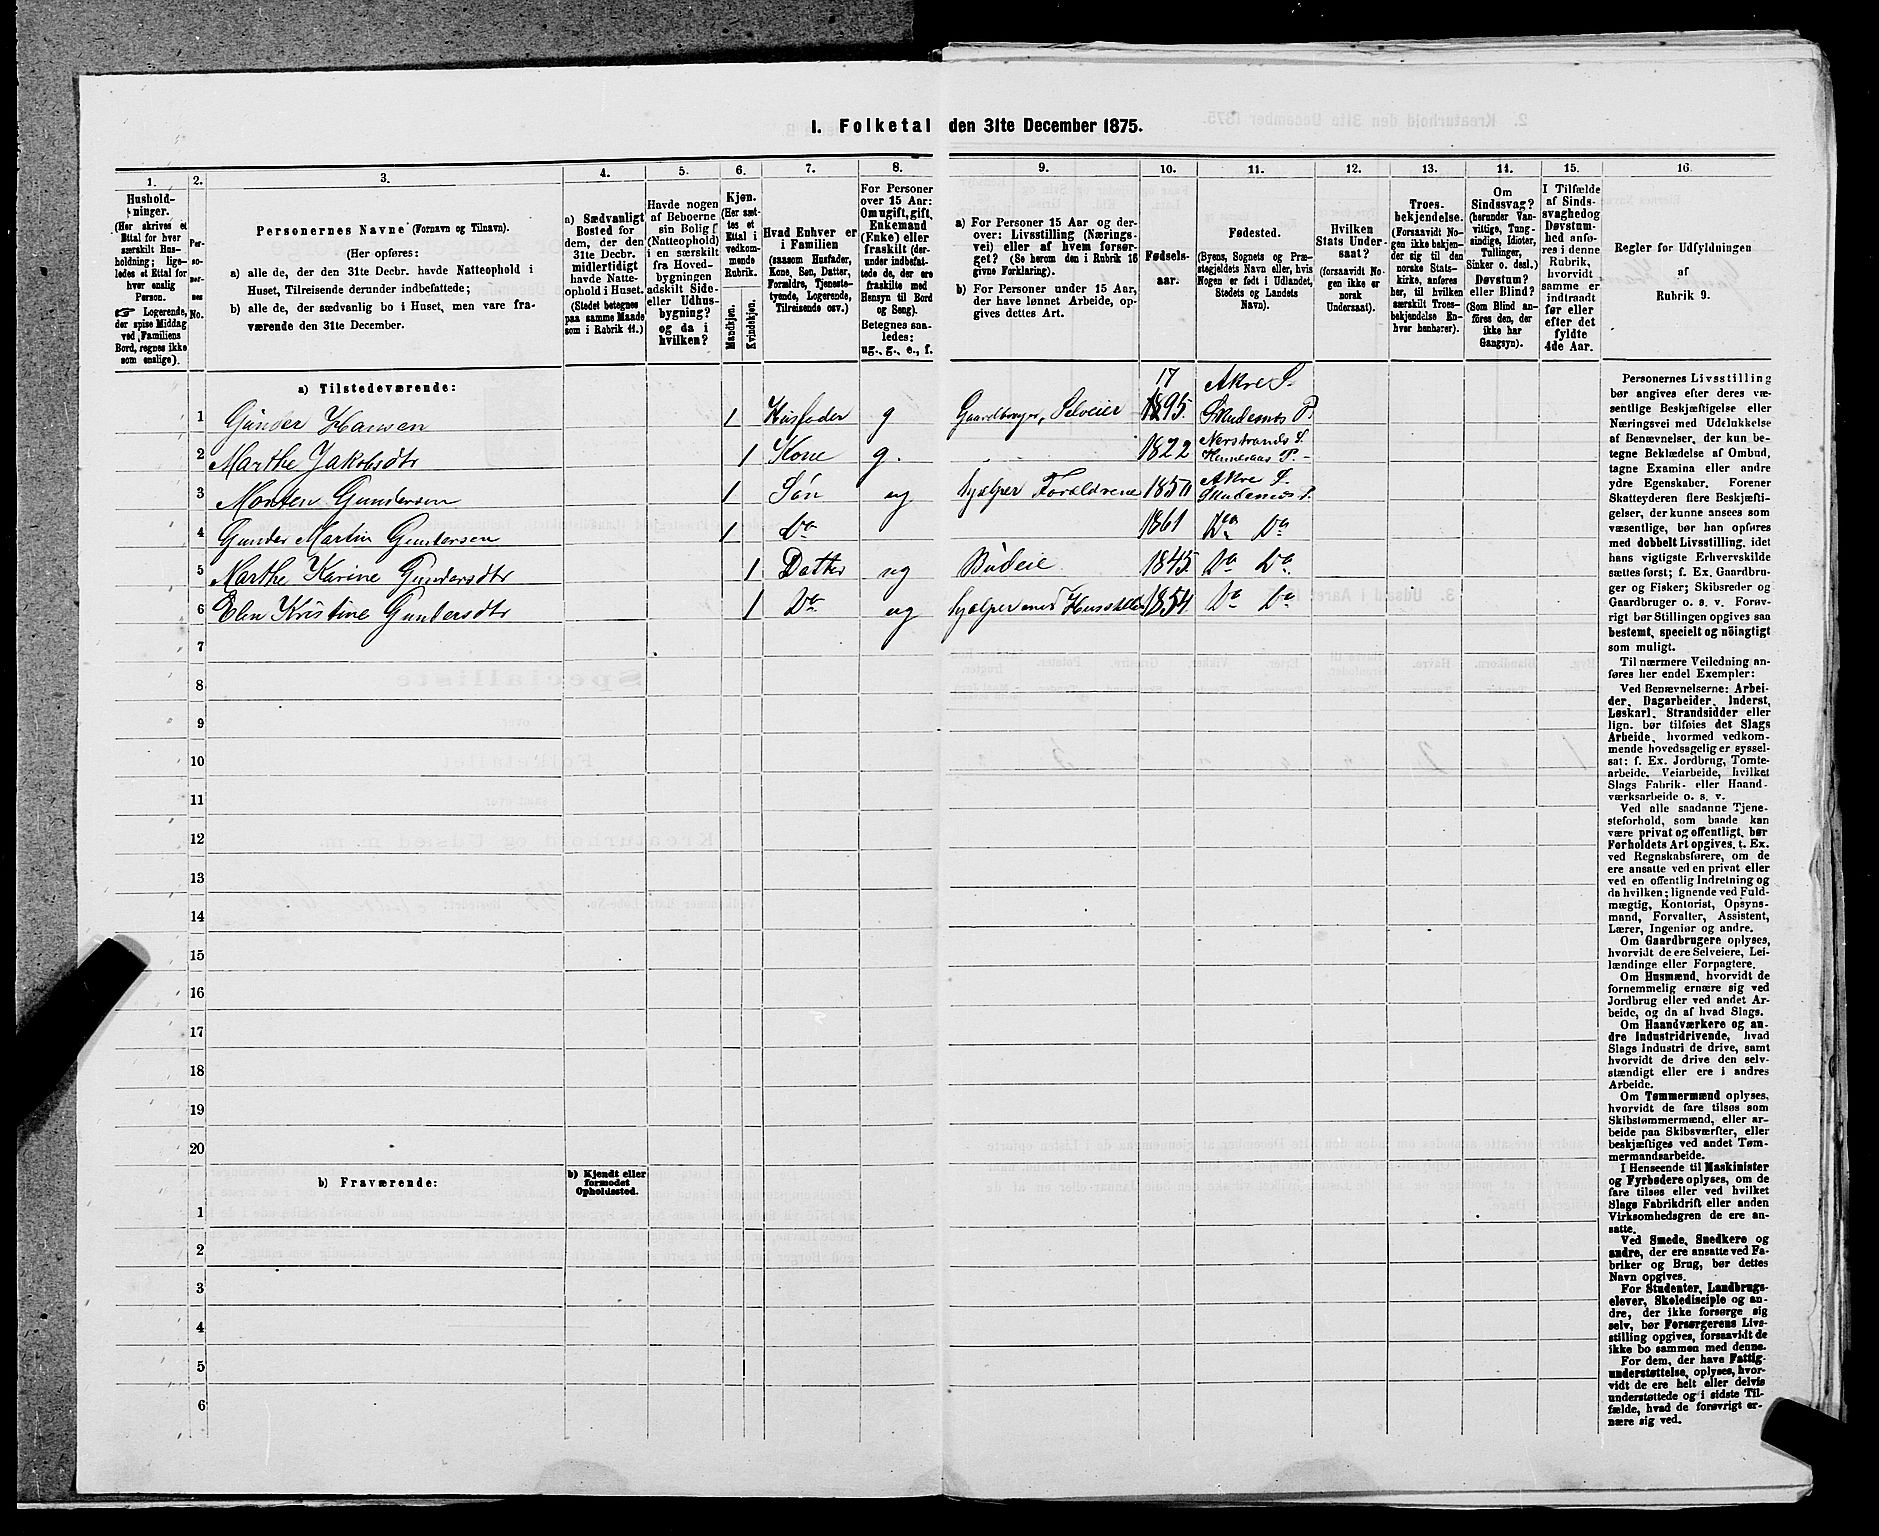 I. Folketal den 31te December 1875.
1. 2. 3. 4. 5. 6. 7. 8. 9. 10. 11. 12. 13. 14. 15. 16.
Hushold-
ninger.
(Her skrives et
Ettal for hver
særskilt Hus-
holdning; lige-
ledes et Ettal for
hver enslig
Person.
☞ Logerende,
der spise Middag
ved Familiens
Bord, regnes ikke
som enslige).
Per-
so-
ner-
nes
No.
Personernes Navne (Fornavn og Tilnavn).
(Her opføres:
a) alle de, der den 31te Decbr. havde Natteophold i
Huset, Tilreisende derunder indbefattede;
b) alle de, der sædvanlig bo i Huset, men vare fra-
værende den 31te December.
a) Sædvanligt
Bosted for
dem, der den
31te Decbr.
midlertidigt
havde Natte-
ophold i Huset.
(Stedet betegnes
paa samme Maade
som i Rubrik 11.)
Havde nogen
af Beboerne
sin Bolig
(Natteophold)
i en særskilt
fra Hoved-
bygningen
adskilt Side-
eller Udhus-
bygning?
og da i
hvilken?
Kjøn.
(Her sæt-
tes et
Ettal i
vedkom-
mende
Rubrik.
Mandkjøn.
Kvindekjøn.
Hvad Enhver er
i Familien
(saasom Husfader,
Kone, Søn, Datter,
Forældre, Tjeneste-
tyende, Logerende,
Tilreisende osv.)
For Personer
over 15 Aar:
Om ugift, gift,
Enkemand
(Enke) eller
fraskilt (der-
under indbefat-
tede de, der ere
fraskilte med
Hensyn til Bord
og Seng).
Betegnes saa-
ledes:
ug., g., e., f.
a) For Personer 15 Aar og der-
over: Livsstilling (Nærings-
vei) eller af hvem forsør-
get? (Se herom den i Rubrik 16
givne Forklaring).
b) For Personer under 15 Aar,
der have lønnet Arbeide, op-
gives dettes Art.
Fødsels-
aar.
Fødested.
(Byens, Sognets og Præ-
stegjeldets Navn eller, hvis
Nogen er født i Udlandet,
Stedets og Landets
Navn).
Hvilken
Stats Under-
saat?
(forsaavidt No-
gen ikke er
norsk
Undersaat).
Troes-
bekjendelse.
(Forsaavidt No-
gen ikke bekjen-
der sig til den
norske Stats-
kirke, anføres
her, til hvilken
særskilt Troes-
bekjendelse En-
hver henhører).
Om
Sindssvag?
(herunder Van-
vittige, Tung-
sindige, Idioter,
Tullinger,
Sinker o. desl.)
Døvstum?
eller Blind?
(Som Blind an-
føres den, der
ikke har
Gangsyn).
I Tilfælde
af Sinds-
svaghedog
Døvstum-
hed anfø-
res i denne
Rubrik,
hvorvidt
samme er
indtraadt
før eller
efter det
fyldte
4de Aar.
Regler for Udfyldningen
af
Rubrik 9.
a) Tilstedeværende:
17 Akre S.
1 Gunder Hansen 1 Husfader g Gaardbruger, Selveier 1895. Skudesnes P.
2 Marthe Jakobsdtr 1 Kone g. 1822 Nerstrands S.
3 Morten Gundersen 1 Søn ug hjelper Forældrene 1850 Akre S. Skudesnes P.
4 Gunder Martin Gundersen 1 Do 1861 Do Do
5 Marthe Karine Gundersdtr 1 Datter ug Budeie 1845. Do Do
6 Elen Kristine Gundersdtr 1 Do ug hjelper med Husstellet 1854. Do Do
7
8
9
10
11
12
13
14
15
16
17
18
19
20
b) Fraværende:
b) Kjendt eller
formodet
Opholdssted.
1
2
3
4
5
6
Personernes Livsstilling
bør angives efter deres væ-
sentlige Beskjæftigelse eller
Næringsvei med Udelukkelse
af Benævnelser, der kun be-
tegne Beklædelse af Ombud,
tagne Examina eller andre
ydre Egenskaber. Forener
Skatteyderen flere Beskjæfti-
gelser, der kunne ansees som
væsentlige, bør han opføres
med dobbelt Livsstilling, idet
hans vigtigste Erhvervskilde
sættes først; f. Ex. Gaardbru-
ger og Fisker; Skibsreder og
Gaardbruger o. s. v. Forøv-
rigt bør Stillingen opgives saa
bestemt, specielt og nöiagtigt
som muligt.
Til nærmere Veiledning an-
føres her endel Exempler:
Ved Benævnelserne: Arbei-
der, Dagarbeider, Inderst,
Løskarl, Strandsidder eller
lign. bør tilføies det Slags
Arbeide, hvormed vedkom-
mende hovedsagelig er syssel-
sat: f. Ex. Jordbrug, Tomte-
arbeide, Veiarbeide, hvilket
Slags Fabrik- eller Haand-
værksarbeide o. s. v.
Ved alle saadanne Tjene-
steforhold, som baade kan
være privat og offentligt, bør
Forholdets Art opgives, t. Ex.
ved Regnskabsførere, om de
ere ansatte ved en privat eller
ved en offentlig Indretning og
da hvilken; lignende ved Fuld-
mægtig, Kontorist, Opsyns-
mand, Forvalter, Assistent,
Lærer, Ingeniør og andre.
Om Gaardbrugere oplyses,
hvorvidt de ere Selveiere, Lei-
lændinge eller Forpagtere.
Om Husmænd, hvorvidt de
fornemmelig ernære sig ved
Jordbrug eller ved andet Ar-
beide, og da af hvad Slags.
Om Haandværkere og an-
dre Industridrivende, hvad
Slags Industri de drive, samt
hvorvidt de drive den selv-
stændigt eller ere i andres
Arbeide.
Om Tømmermænd oplyses,
hvorvidt de fare tilsøs som
Skibstømmermænd, eller ar-
beide paa Skibsværfter, eller
beskjæftiges ved andet Tøm-
mermandsarbeide.
I Henseende til Maskinister
og Fyrbødere oplyses, om de
fare tilsøs eller ved hvilket
Slags Fabrikdrift eller anden
Virksomhedsgren de ere an-
satte.
Ved Smede, Snedkere og
andre, der ere ansatte ved Fa-
briker og Brug, bør dettes
Navn opgives.
For Studenter, Landbrugs-
elever, Skoledisciple og an-
dre, der ikke forsørge sig
selv, bør Forsørgerens Livs-
stilling opgives, forsaavidt de
ikke bo sammen med denne.
For dem, der have Fattig-
understøttelse, oplyses, hvor-
vidt de ere helt eller delvis
understøttede og i sidste Til-
fælde, hvad de forøvrigt er-
nære sig ved.